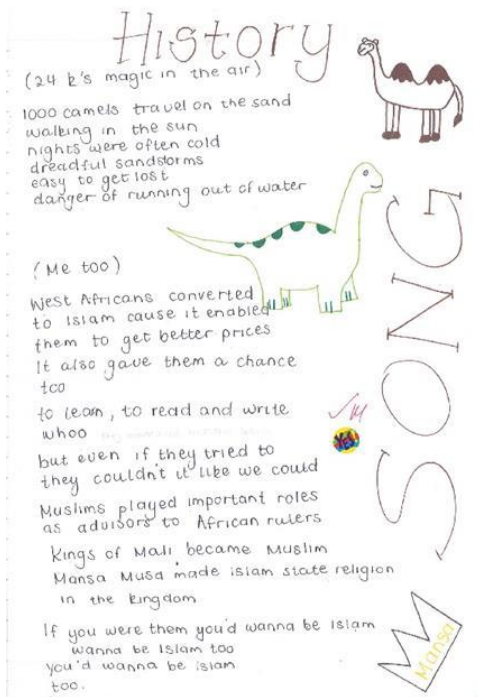 History
(24 k's magic in the air)
1000 camels travel on the sand
walking in the sun
nights were often cold
dreadful sandstorms
easy to get lost
danger of running out of water
(Me too)
West Africans converted
to Islam cause it enabled
them to get better prices
It also gave them a chance
too
to learn, to read and write
whoo
but even if they tried to
they couldn't it like we could
Muslims played important roles
as advisors to African rulers
Kings of Mali became Muslim
Mansa Musa made islam state religion
in the kingdom
If you were them you'd wanna be Islam
wanna be Islam too
you'd wanna be islam
too.
SONG
YES!
Mansa